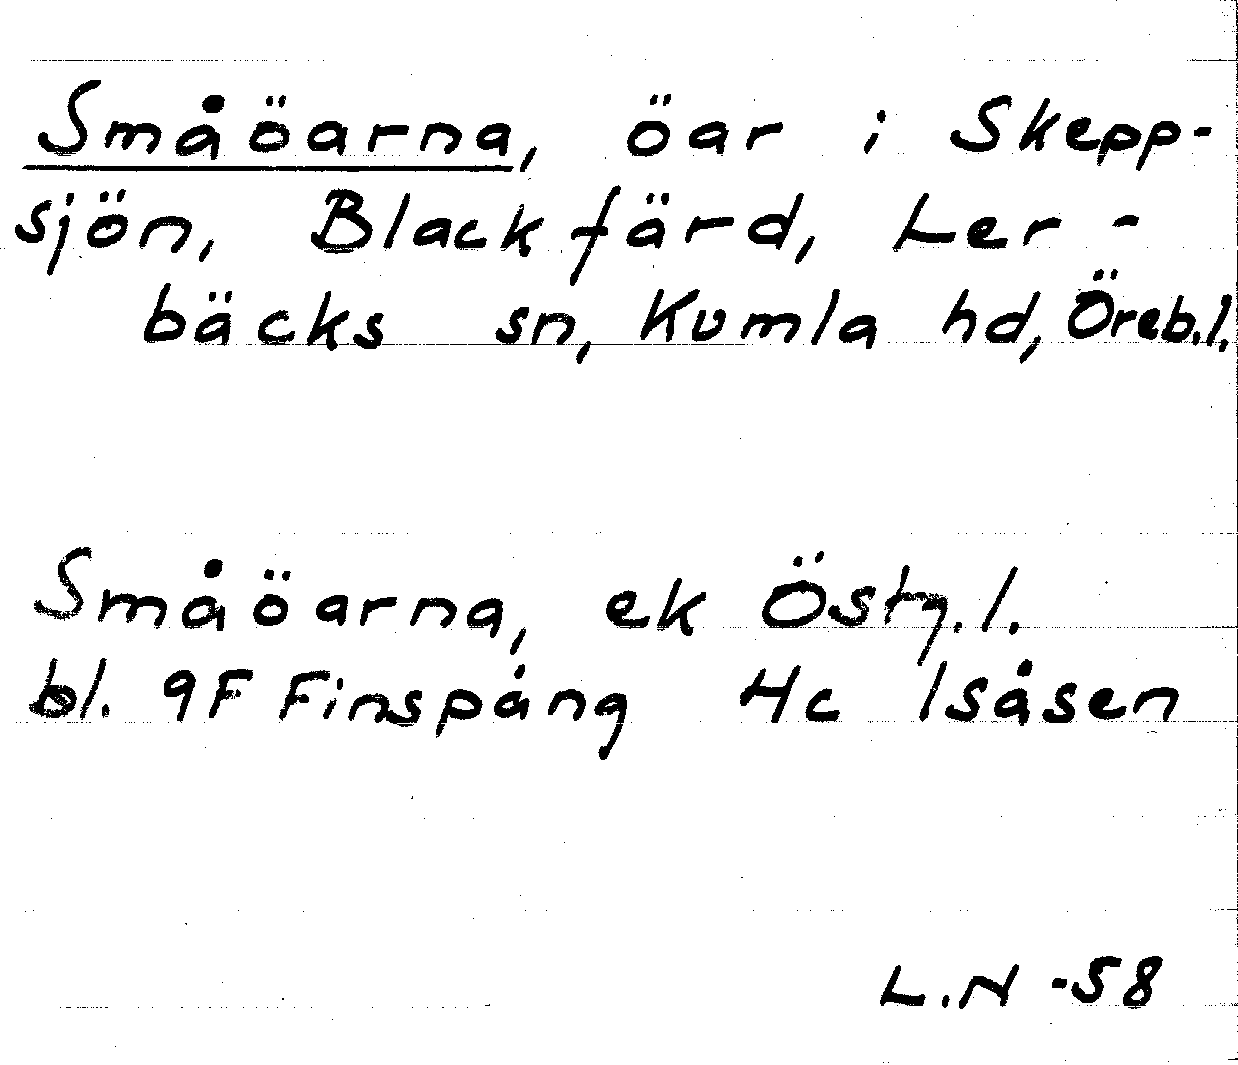 Småöarna, öar i Skepp-
sjön, Blackfärd, Ler-
bäcks sn, Kumla hd, Öreb.l.
Småöarna, ek Östg.l.
bl. 9F Finspång 4c Isåsen
L.N -58